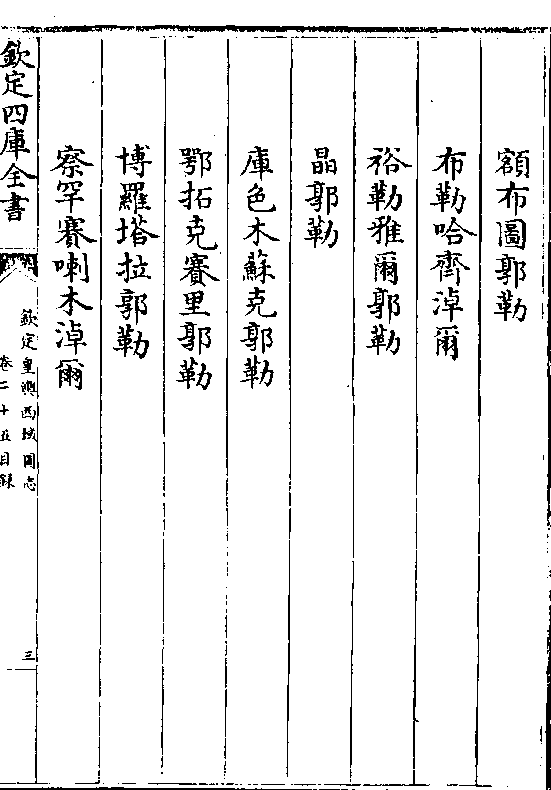 額布圖郭勒
布勒哈齊淖爾
裕勒雅爾郭勒
晶郭勒
庫色木蘇克郭勒
鄂拓克賽里郭勒
博羅塔拉郭勒
察罕賽喇木淖爾
欽定四庫全書
欽定皇輿西域圖志
卷二十五目録
三